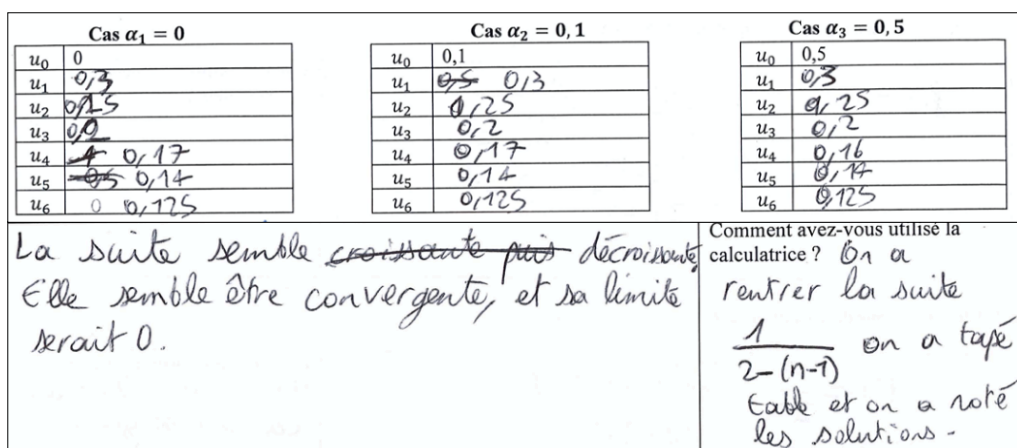 Cas α₁ = 0
u₀ 0
u₁ 0,3
u₂ 0,25
u₃ 0,2
u₄ 1 0,17
u₅ 0,5 0,14
u₆ 0 0,125
Cas α₂ = 0,1
u₀ 0,1
u₁ 0,5 0,3
u₂ 0,25
u₃ 0,2
u₄ 0,17
u₅ 0,14
u₆ 0,125
Cas α₃ = 0,5
u₀ 0,5
u₁ 0,3
u₂ 0,25
u₃ 0,2
u₄ 0,16
u₅ 0,14
u₆ 0,125
La suite semble croissante puis décroissante,
Elle semble être convergente, et sa limite
serait 0.
Comment avez-vous utilisé la
calculatrice ? On a
rentrer la suite
1/2-(n-1) on a tapé
table et on a noté
les solutions.